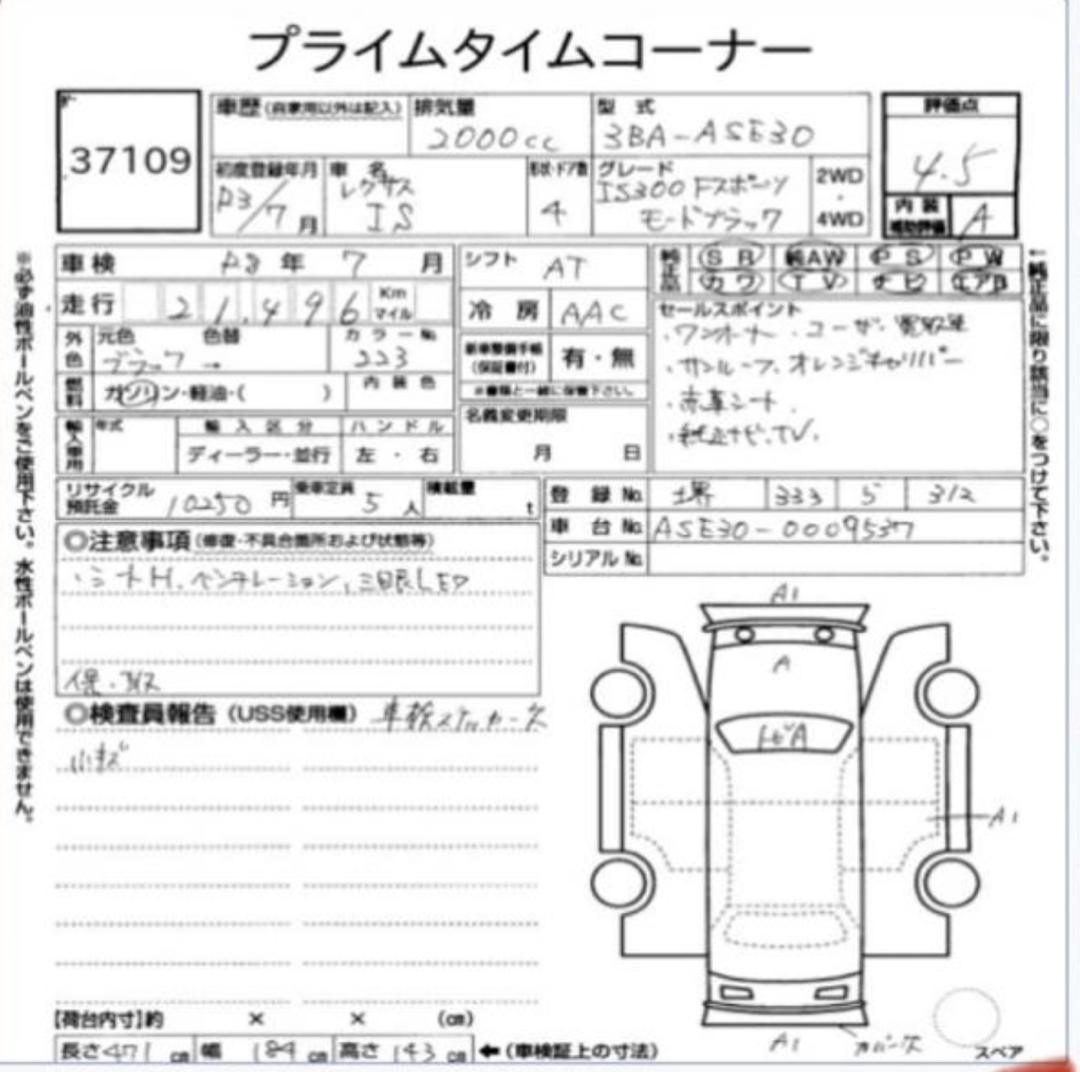 プライムタイムコーナー
37109
車歴(自家用以外は記入)
排気量
2000cc
型式
3BA-ASE30
評価点
4.5
初度登録年月
R3/7月
車名
レクサス
IS
形状・ドア数
4
グレード
IS300 Fスポーツ
モードブラック
2WD
・
4WD
内装
補助評価
A
車検 R8年7月
シフト AT
純正品
SR 純AW PS PW
カワ TV ナビ エアB
走行 21,496 Km マイル
冷房 AAC
セールスポイント
・ワンオーナー・ユーザー買取車
・サンルーフ、オレンジキャリパー
・赤革シート
・純正ナビ、TV.
外色
元色 色替
ブラック →
カラーNo.
223
新車整備手帳
(保証書付)
有・無
※書類と一緒に保管下さい。
燃料
ガソリン・軽油・( )
内装色
名義変更期限
月 日
輸入車用
年式
輸入区分
ハンドル
ディーラー・並行
左・右
リサイクル
預託金
10250円
乗車定員
5人
積載量
t
登録No. 堺 333 312
車台No. ASE30-0009537
シリアルNo.
◎注意事項(修復・不具合箇所および状態等)
・シートH、ベンチレーション、三眼LED
◎検査員報告(USS使用欄) 車検ステッカー欠
小キズ
A1
A
トビA
A1
A1
カバー欠
スペア
【荷台内寸】約 × × (cm)
長さ471cm 幅184cm 高さ143cm ←(車検証上の寸法)
※必ず油性ボールペンをご使用下さい。水性ボールペンは使用できません。
←純正品に限り該当に○をつけて下さい。